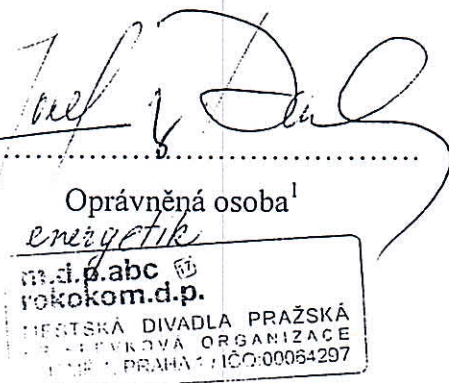 Josef
Oprávněná osoba¹
energetik
m.d.p.abc
rokokom.d.p.
MĚSTSKÁ DIVADLA PRAŽSKÁ
ORGANIZACE
PRAHA 1 IČO:00064297